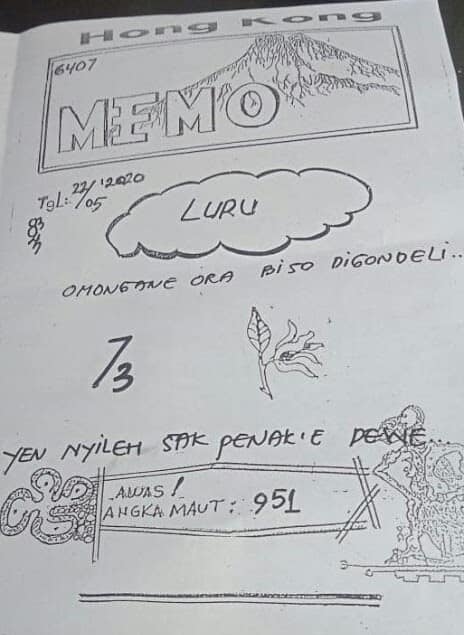 Hong Kong
6407
MEMO
TgL: 22/05 '2020
LURU
OMONGANE ORA BISO DIGONDELI..
7/3
YEN NYILEH SAK PENAK'E DEWE...
AWAS!
ANGKA MAUT: 951